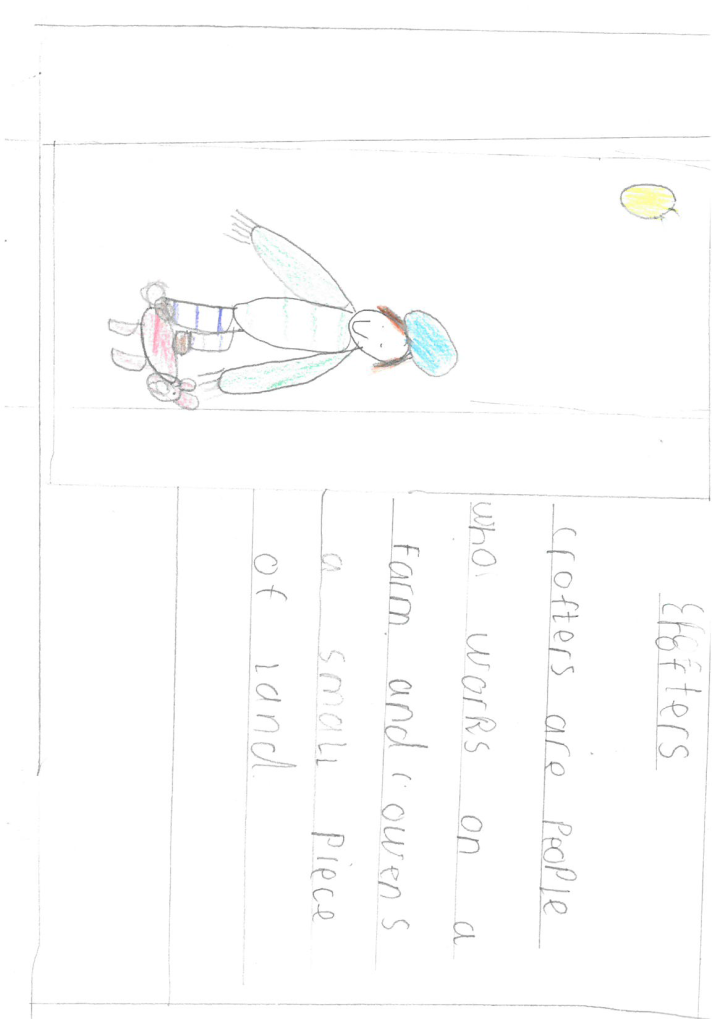 Crofters
crofters are people
who works on a
farm and owens
a small piece
of land.